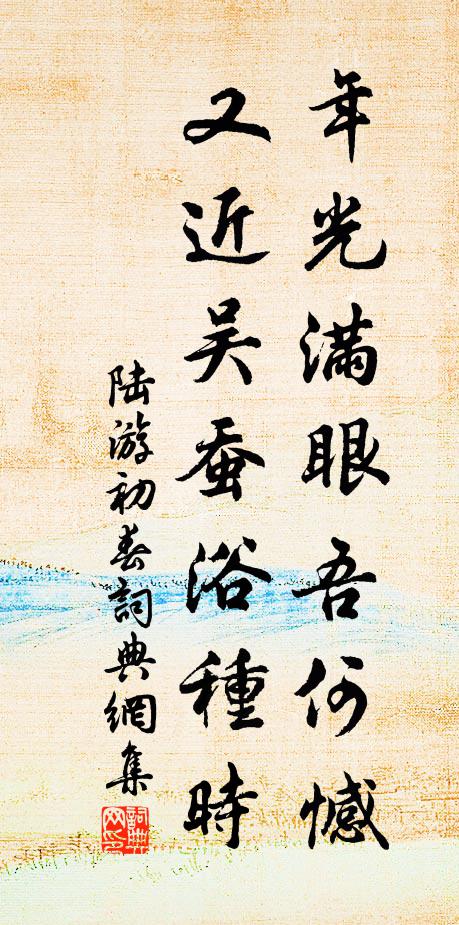 年光滿眼吾何憾
又近吴蚕浴種時
陆游初春詞典網集
詞典网印